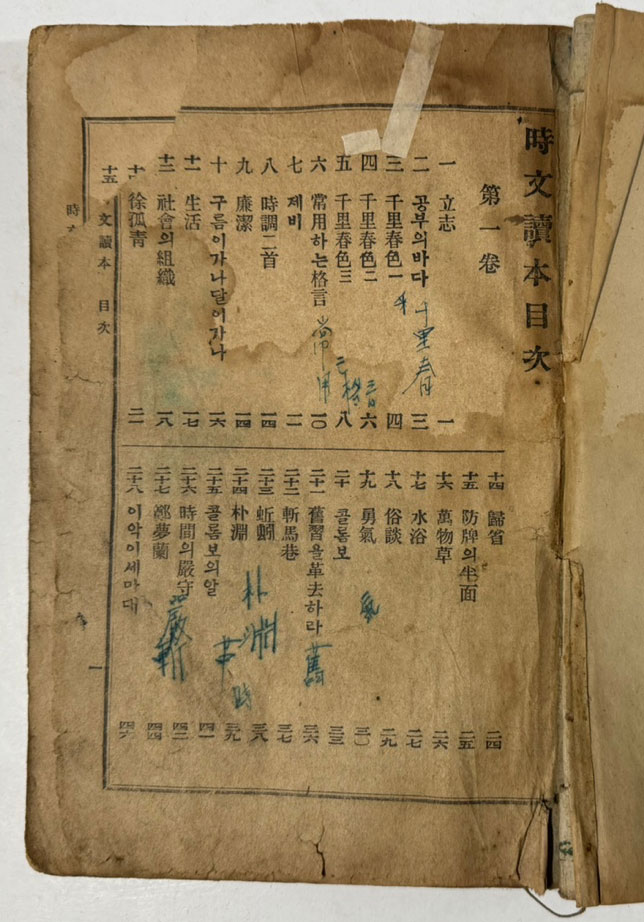 時文讀本目次
第一卷
一 立志 一
二 공부의바다 三
三 千里春色一 四
四 千里春色二 六
五 千里春色三 八
六 常用하는格言 一〇
七 제비 一一
八 時調二首 一四
九 廉潔 一四
十 구름이가나달이가나 一六
十一 生活 一七
十二 社會의組織 一八
徐孤靑 二一
十四 歸省 二四
十五 防牌의半面 二五
十六 萬物草 二六
十七 水浴 二七
十八 俗談 二九
十九 勇氣 三〇
二十 콜롬보 三三
二十一 舊習을革去하라 三六
二十二 斬馬巷 三七
二十三 蚯蚓 三八
二十四 朴淵 三九
二十五 콜롬보의알 四一
二十六 時間의嚴守 四二
二十七 鄭夢蘭 四四
二十八 이악이세마대 四六
十五
文讀本 目次
一
時
千里春
常用
格言
氣
舊
朴淵
嚴
斬